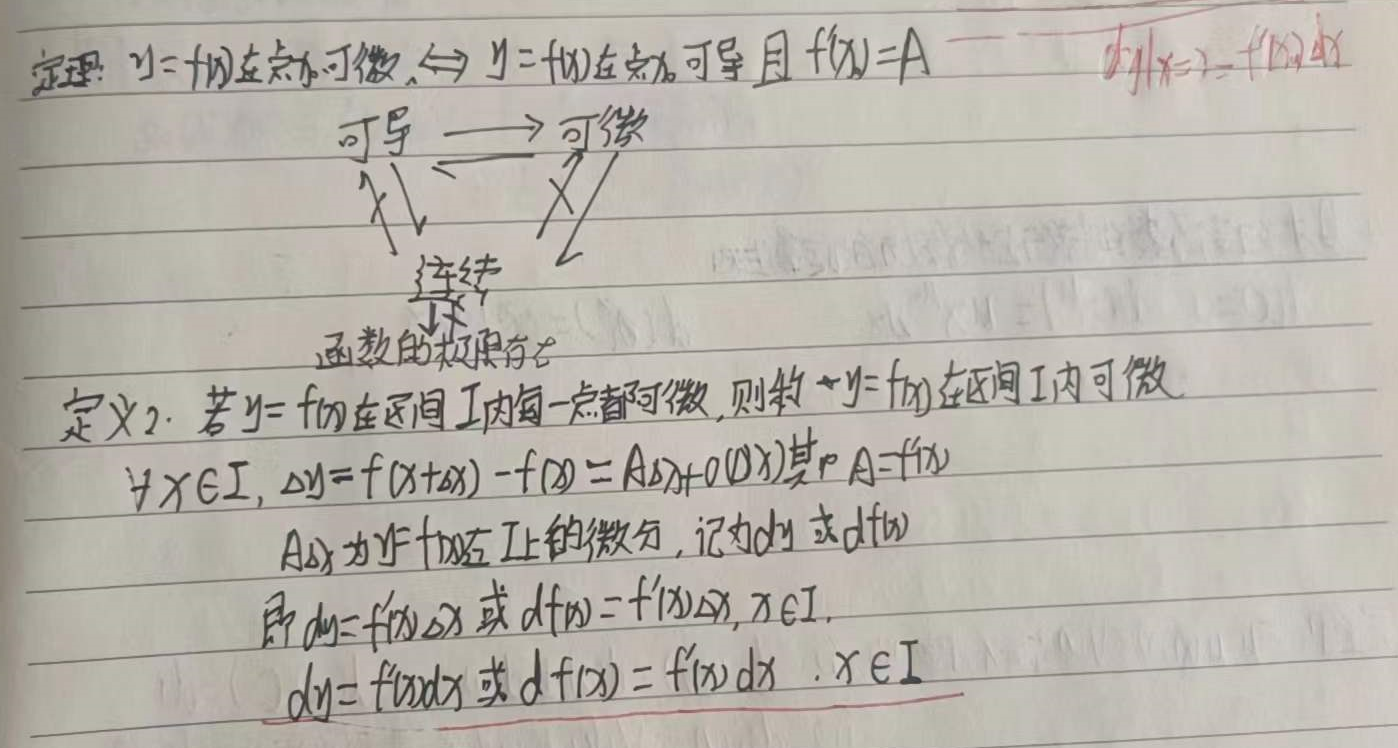 定理: y=f(x)在点x₀可微 ⟺ y=f(x)在点x₀可导且 f'(x₀)=A
dy|x=2=f'(x₀)dx
可导 ⇄ 可微
连续
函数的极限存在
定义2. 若y=f(x)在区间I内每一点都可微,则称 y=f(x)在区间I内可微
∀x∈I, Δy=f(x+Δx)-f(x)=AΔx+o(Δx)其中A=f'(x)
AΔx为y=f(x)在I上的微分,记为dy或df(x)
即dy=f'(x)Δx或df(x)=f'(x)Δx, x∈I.
dy=f'(x)dx或df(x)=f'(x)dx . x∈I